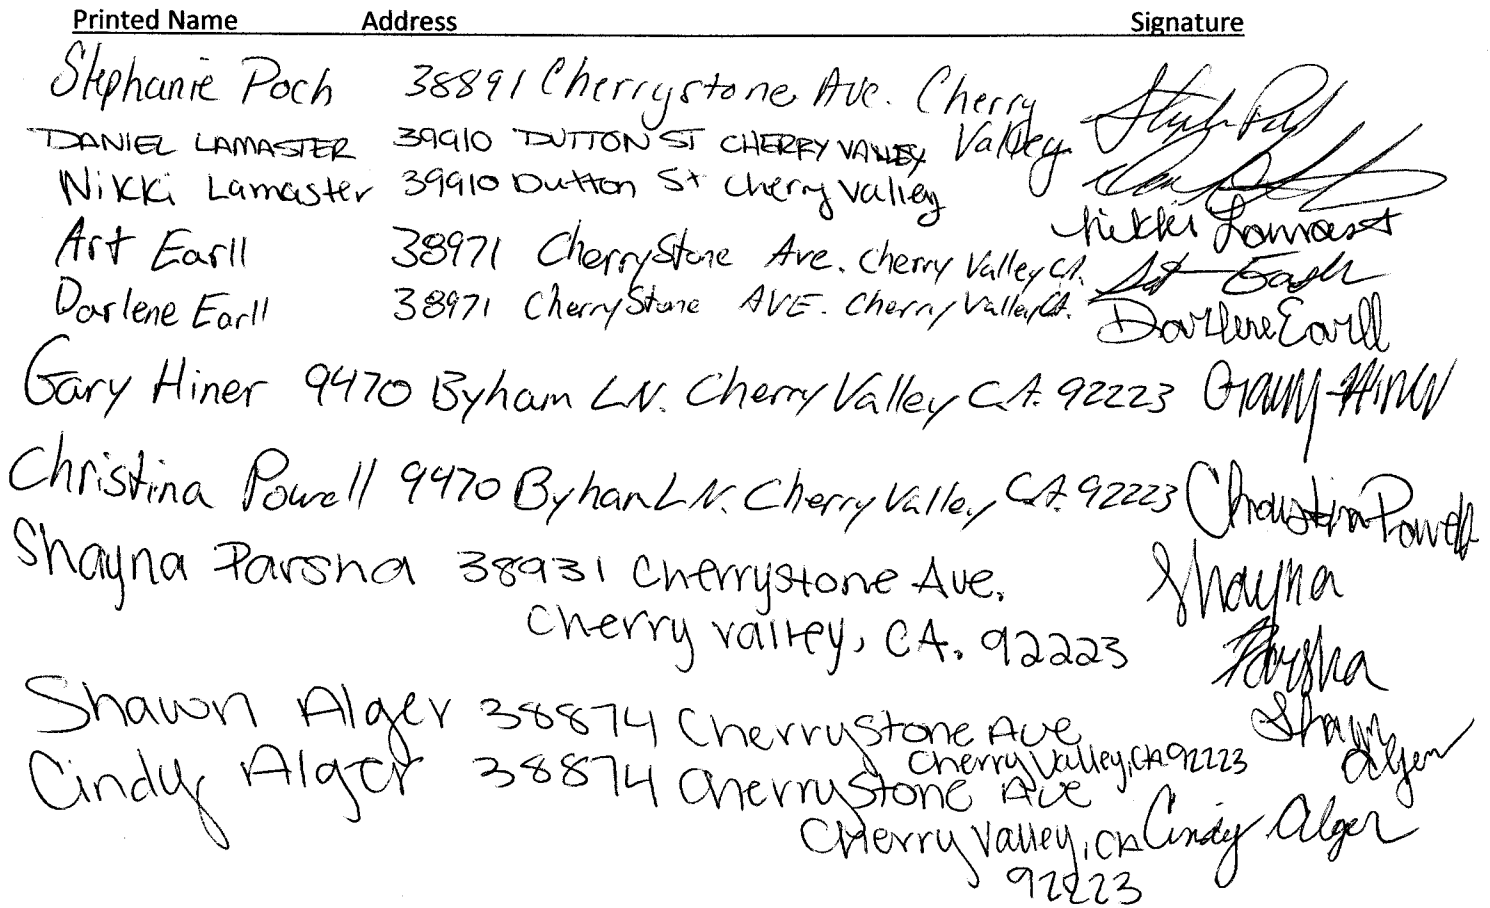 Printed Name Address Signature
Stephanie Poch 38891 Cherrystone Ave. Cherry Valley
DANIEL LAMASTER 39910 DUTTON ST CHERRY VALLEY
Nikki Lamaster 39910 Dutton St Cherry Valley Nikki Lamast
Art Earll 38971 CherryStone Ave. Cherry Valley CA. Art Earll
Darlene Earll 38971 CherryStone AVE. Cherry Valley CA. Darlene Earll
Gary Hiner 9470 Byham LN. Cherry Valley CA. 92223 Gary Hiner
Christina Powell 9470 Byham LN. Cherry Valley CA. 92223 Christina Powell
Shayna Parsha 38931 Cherrystone Ave. Shayna
Cherry valley, CA. 92223 Parsha
Shawn Alger 38874 Cherrystone Ave Shawn
Cherry Valley, CA 92223 Alger
Cindy Alger 38874 Cherrystone Ave
Cherry Valley, CA Cindy Alger
92223